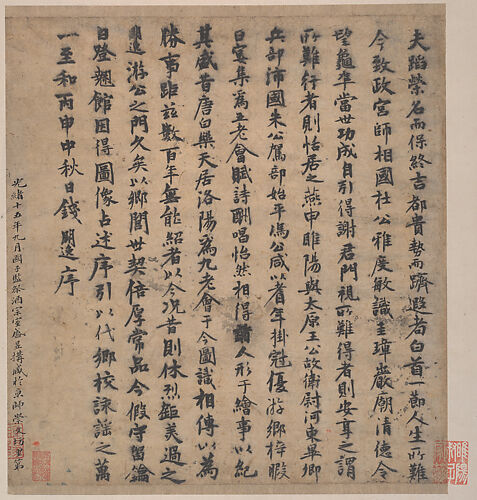 夫蹈榮名而保終吉都貴勢而躋遐耇白首一節人生所難
今致政宮師相國杜公雅度敏識圭璋巖廟清德令
望龜準當世功成自引得謝君門視所難得者則安享之謂
所難行者則恬居之燕申睢陽與太原王公故衛尉河東畢卿
兵部沛國朱公駕部始平馮公咸以耆年掛冠優游鄉梓暇
日宴集為五老會賦詩酬唱怡然相得人形于繪事以紀
其盛昔唐白樂天居洛陽為九老會于今圖識相傳以為
勝事距茲數百年無能紹者以今況昔則休烈鉅美過之
明逸游公之門久矣以鄉閭世契倍厚常品今假守留鑰
日登翹館因得圖像占述序引以代鄉校詠謠之萬
一至和丙申中秋日錢明逸序
光緒十五年九月國子監祭酒宗室盛昱構藏於京師崇文坊第